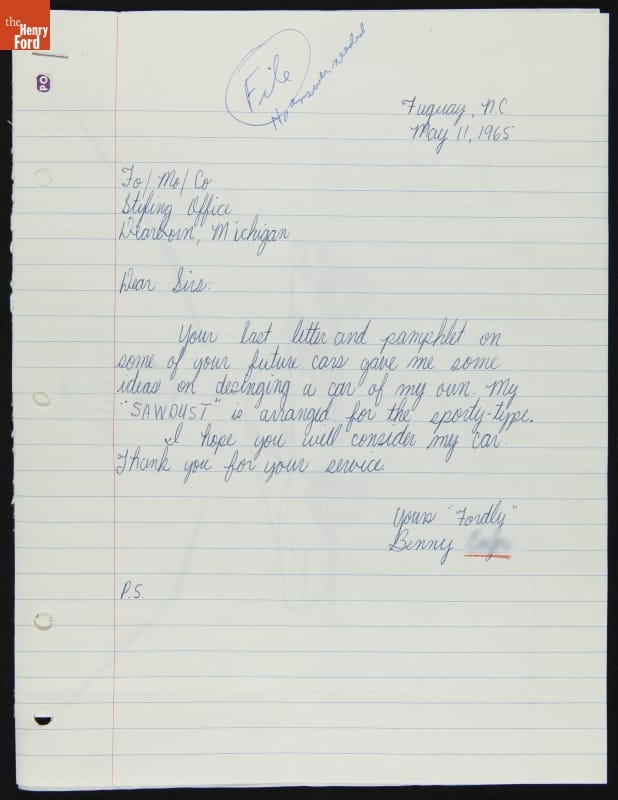 the
Henry
Ford
PO
File
No answer needed
Fuquay, N.C.
May 11, 1965
Fo/Mo/Co
Styling Office
Dearborn, Michigan
Dear Sirs:
Your last letter and pamphlet on
some of your future cars gave me some
ideas on desinging a car of my own. My
"SAWDUST" is arranged for the sporty-type.
I hope you will consider my car.
Thank you for your service
Yours "Fordly"
Benny
P.S.